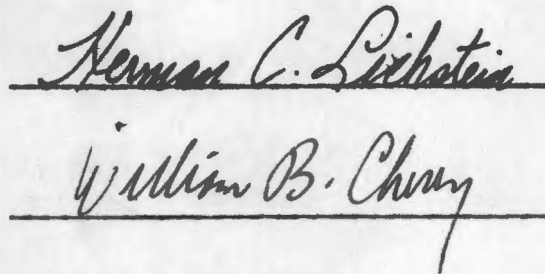 Herman C. Lichstein
William B. Cherry